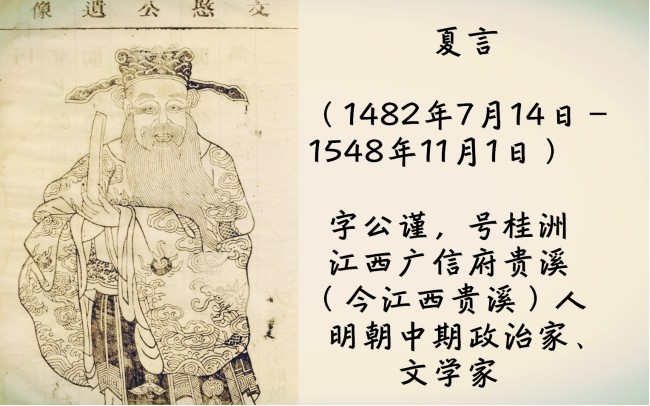 文愍公遺像
夏言
（1482年7月14日－
1548年11月1日）
字公谨，号桂洲
江西广信府贵溪
（今江西贵溪）人
明朝中期政治家、
文学家